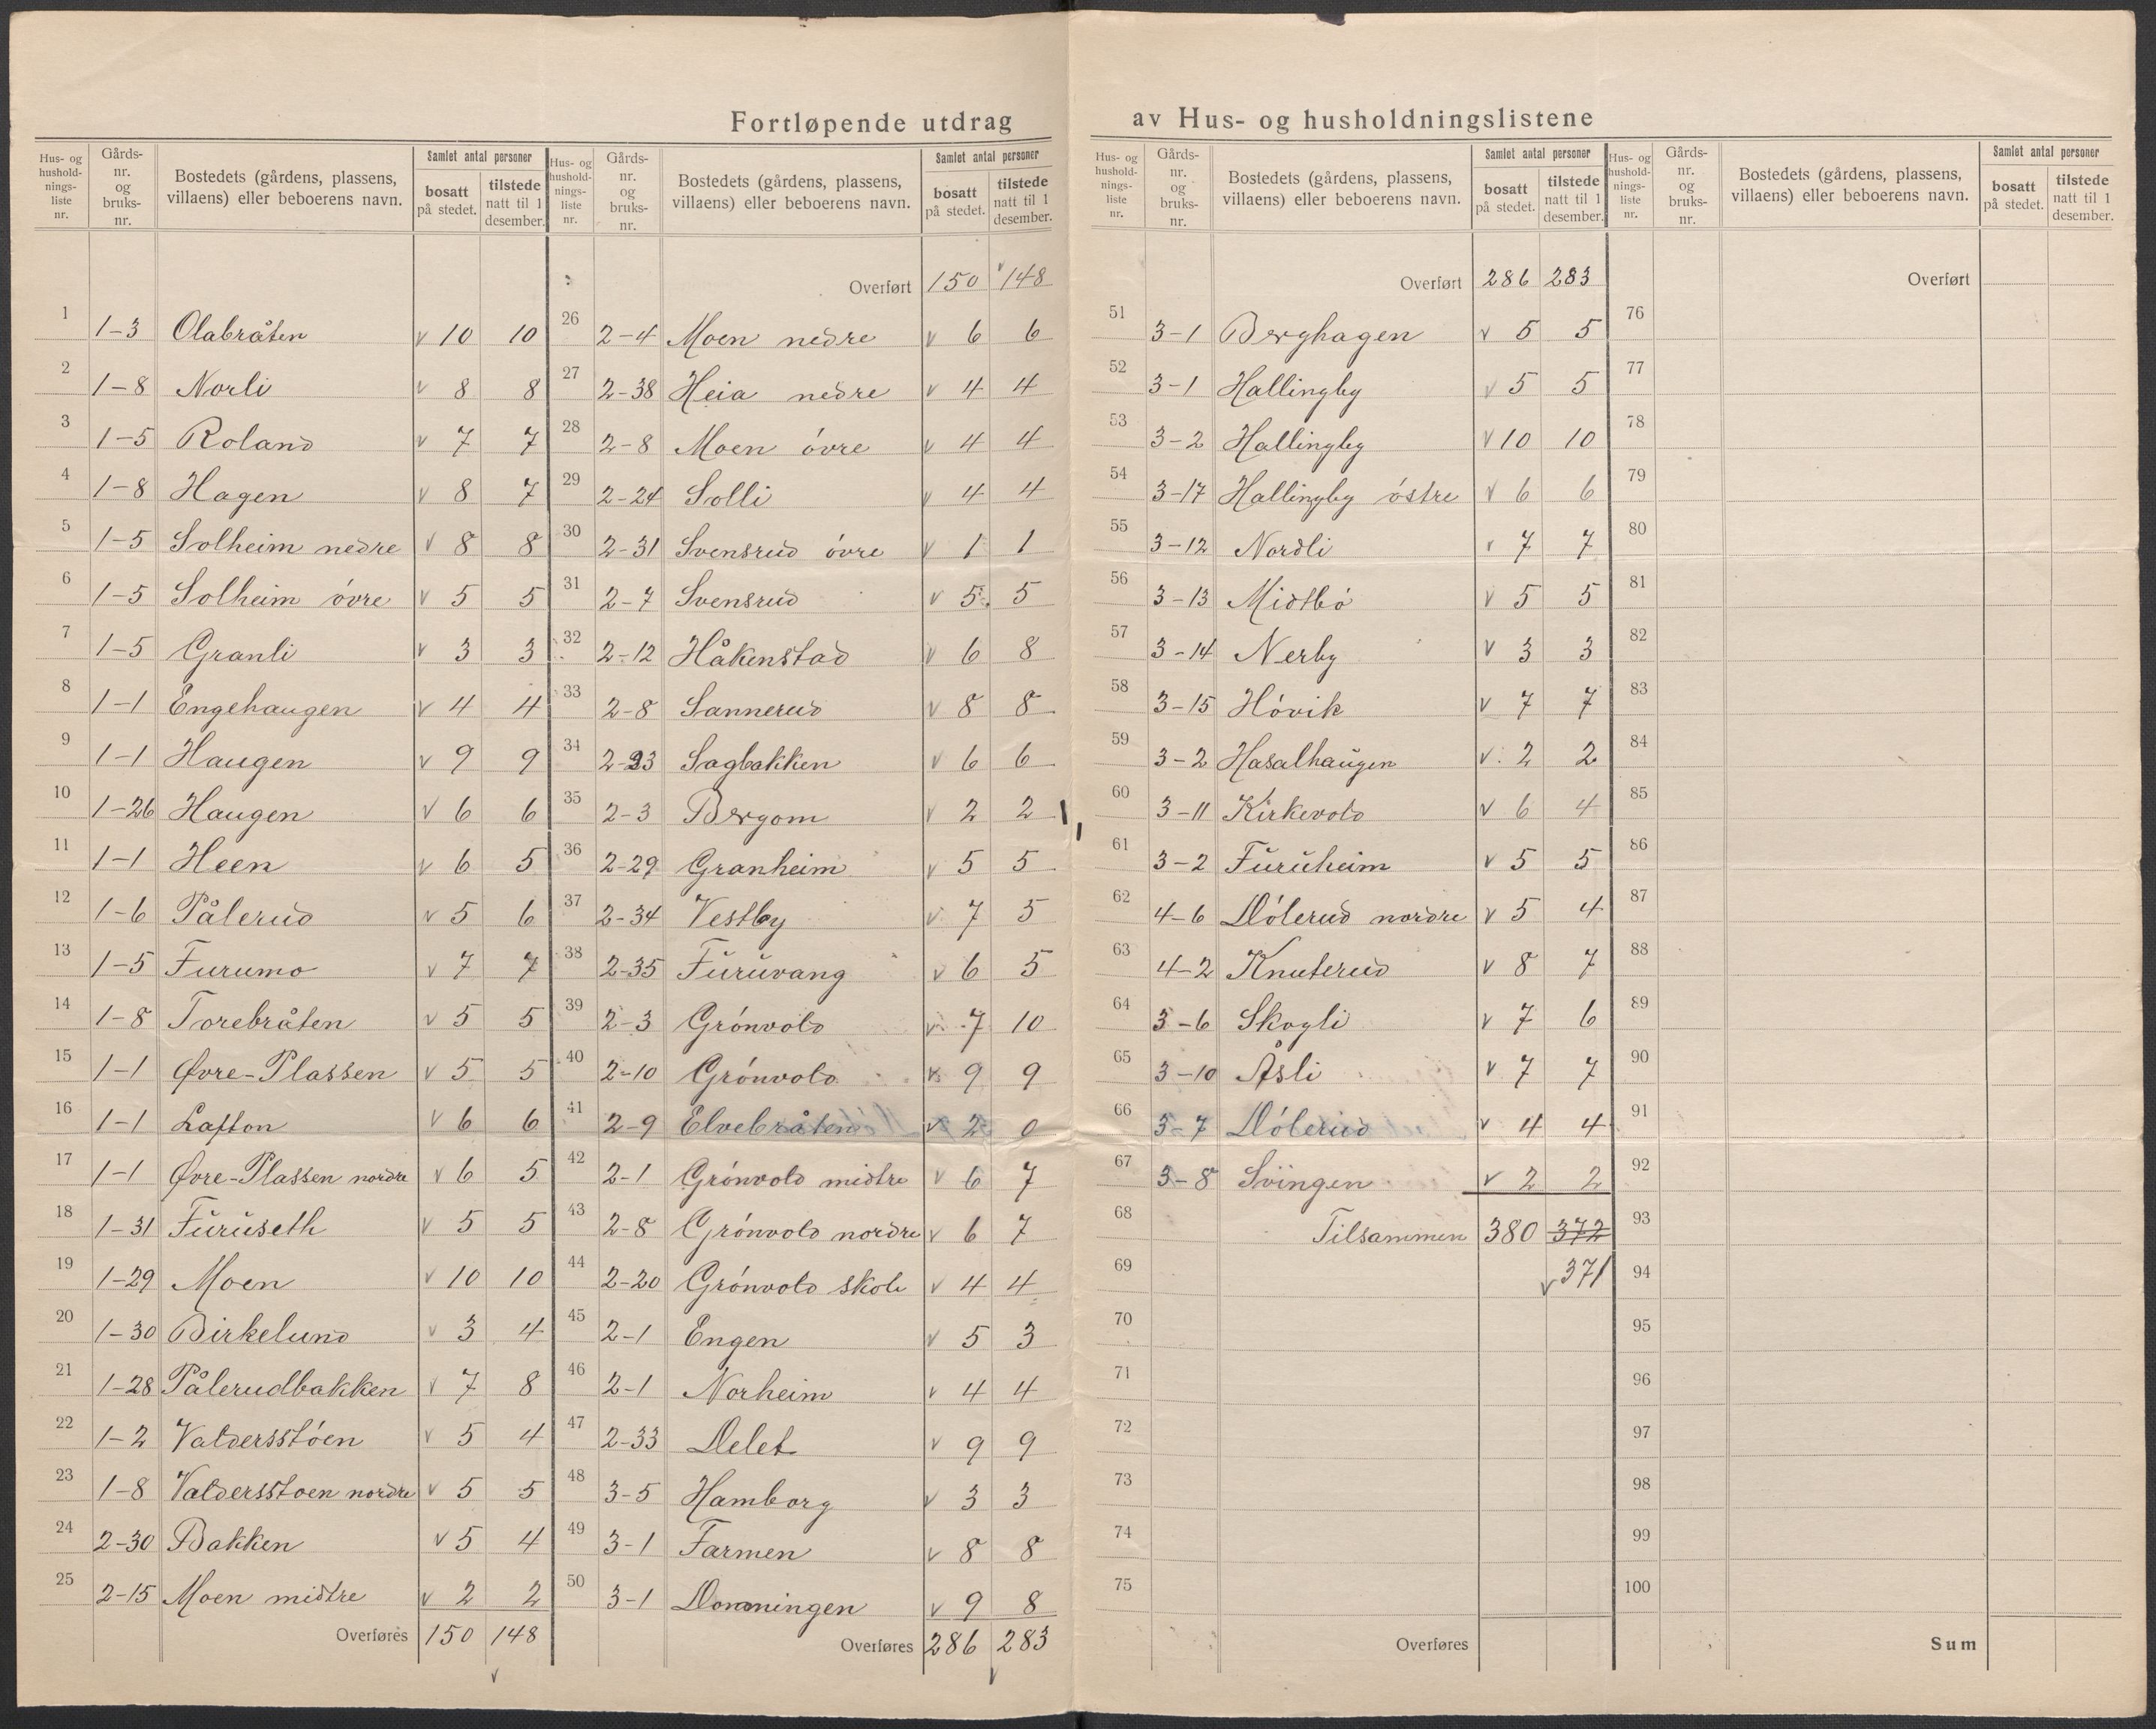 Fortløpende utdrag av Hus- og husholdningslistene
Hus- og hushold- nings- liste nr. Gårds- nr. og bruks- nr. Bostedets (gårdens, plassens, villaens) eller beboerens navn. Samlet antal personer bosatt på stedet. tilstede natt til 1 desember.
1 1-3 Olabråten v 10 10
2 1-8 Norli v 8 8
3 1-5 Roland v 7 7
4 1-8 Hagen v 8 7
5 1-5 Solheim nedre v 8 8
6 1-5 Solheim óvre v 5 5
7 1-5 Granli v 3 3
8 1-1 Engehaugen v 4 4
9 1-1 Haugen v 9 9
10 1-26 Haugen v 6 6
11 1-1 Heen v 6 5
12 1-6 Pålerud v 5 6
13 1-5 Furumo v 7 7
14 1-8 Torebråten v 5 5
15 1-1 Øvre-Plassen v 5 5
16 1-1 Lafton v 6 6
17 1-1 Øvre-Plassen nordre v 6 5
18 1-31 Furuseth v 5 5
19 1-29 Moen v 10 10
20 1-30 Birkelund v 3 4
21 1-28 Pålerudbakken v 7 8
22 1-2 Valdersstóen v 5 4
23 1-8 Valdersstoen nordre v 5 5
24 2-30 Bakken v 5 4
25 2-15 Moen midtre v 2 2
Overføres 150 148
v
Hus- og hushold- nings- liste nr. Gårds- nr. og bruks- nr. Bostedets (gårdens, plassens, villaens) eller beboerens navn. Samlet antal personer bosatt på stedet. tilstede natt til 1 desember.
Overført 150 v 148
26 2-4 Moen nedre v 6 6
27 2-38 Heia nedre v 4 4
28 2-8 Moen óvre v 4 4
29 2-24 Solli v 4 4
30 2-31 Svensrud óvre v 1 1
31 2-7 Svensrud v 5 5
32 2-12 Håkenstad v 6 8
33 2-8 Sannerud v 8 8
34 2-23 Sagbakken v 6 6
35 2-3 Bergom v 2 2
36 2-29 Granheim v 5 5
37 2-34 Vestby v 7 5
38 2-35 Furuvang v 6 5
39 2-3 Grónvold v 7 10
40 2-10 Grónvold v 9 9
41 2-9 Elvebråten v 2 0
42 2-1 Grónvold midtre v 6 7
43 2-8 Grónvold nordre v 6 7
44 2-20 Grónvold skole v 4 4
45 2-1 Engen v 5 3
46 2-1 Norheim v 4 4
47 2-33 Delet v 9 9
48 3-5 Hamborg v 3 3
49 3-1 Farmen v 8 8
50 3-1 Dronningen v 9 8
Overføres 286 283
v
Hus- og hushold- nings- liste nr. Gårds- nr. og bruks- nr. Bostedets (gårdens, plassens, villaens) eller beboerens navn. Samlet antal personer bosatt på stedet. tilstede natt til 1 desember.
Overført 286 283
51 3-1 Berghagen v 5 5
52 3-1 Hallingby v 5 5
53 3-2 Hallingby v 10 10
54 3-17 Hallingby óstre v 6 6
55 3-12 Nordli v 7 7
56 3-13 Midtbó v 5 5
57 3-14 Nerby v 3 3
58 3-15 Hóvik v 7 7
59 3-2 Hasalhaugen v 2 2
60 3-11 Kirkevold v 6 4
61 3-2 Furuheim v 5 5
62 4-6 Dólerud nordre v 5 4
63 4-2 Knuterud v 8 7
64 3-6 Skogli v 7 6
65 3-10 Åsli v 7 7
66 3-7 Dólerud v 4 4
67 3-8 Svingen v 2 2
68 Tilsammen 380 372
69 v 371
70
71
72
73
74
75
Overføres
Hus- og hushold- nings- liste nr. Gårds- nr. og bruks- nr. Bostedets (gårdens, plassens, villaens) eller beboerens navn. Samlet antal personer bosatt på stedet. tilstede natt til 1 desember.
Overført
76
77
78
79
80
81
82
83
84
85
86
87
88
89
90
91
92
93
94
95
96
97
98
99
100
Sum